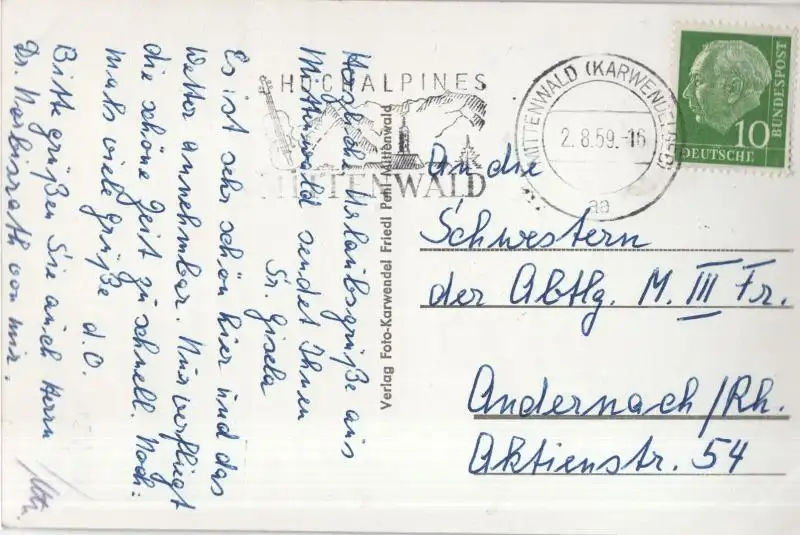 Herzliche Urlaubsgrüße aus
Mittenwald sendet Ihnen
Sr. Gisela
Es ist sehr schön hier und das
Wetter annehmbar. Nur verfliegt
die schöne Zeit zu schnell. Noch-
mals viele Grüße d. O.
Bitte grüßen Sie auch Herrn
Dr. Norbisrath von mir.
Verlag Foto-Karwendel Friedl Penl Mittenwald
HOCHALPINES
MITTENWALD
MITTENWALD (KARWENDELGEB)
2.8.59.-16
aa
10
DEUTSCHE
BUNDESPOST
An die
Schwestern
der Abtlg. M. III Fr.
Andernach/Rh.
Aktienstr. 54